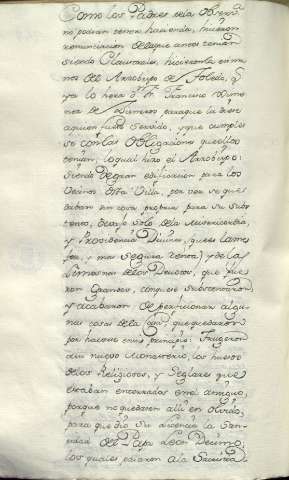 Como los Padres dela Observ.ª
no podian tener haciendas, hicieron
renunciacion delas que antes tenian
siendo Claustrales, hicieronla en ma-
nos del Arzobispo de Toledo, q̃
ya lo hera D.ⁿ Fr. Francisco Ximé-
nez de Cisneros para que la diese
a quien fuese servido, y que cumpliese
con las Obligaciones que ellos
tenian, lo qual hizo el Arzobispo:
siendo de gran edificacion para los
Vecinos desta Villa, por ver se que-
daban sin cosa propria para su Sus-
tento, fiados solo dela Misericordia,
y Providencia Divina, que es la me-
jor, y mas segura renta; y de las
limosnas delos Devotos, que fue-
ron Grandes, conque se sustentaron,
y acabaron de perficionar algu-
nas cosas dela que quedaron
por hacerse en su principio. Trugeron
al nuevo Monasterio, los huesos
delos Religiosos, y Seglares que
estaban enterrados en el antiguo,
porque no quedasen alli en olvido,
para que dio su licencia la San-
tidad del Papa Leon Decimo,
los quales pusieron a la